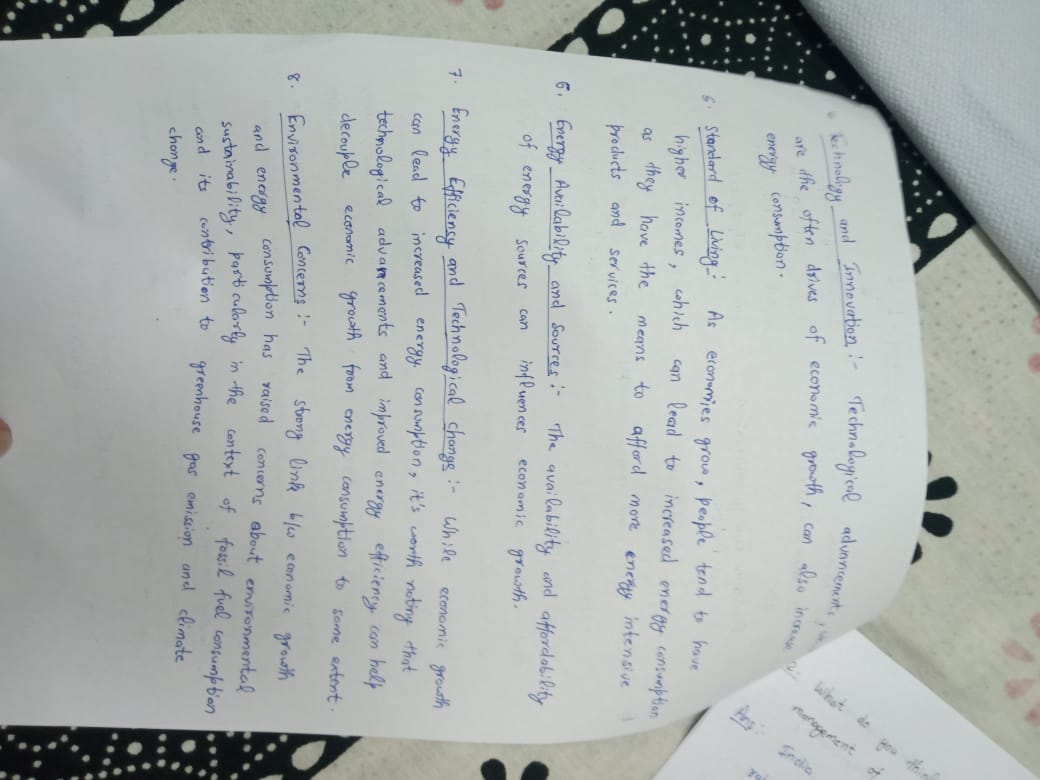 Technology and Innovation :- Technological advancements,
are the often drives of economic growth, can also increase
energy consumption.
5. Standard of Living :- As economies grow, people tend to have
higher incomes, which can lead to increased energy consumption
as they have the means to afford more energy intensive
products and services.
6. Energy Availability and Sources :- The availability and affordability
of energy sources can influences economic growth.
7. Energy Efficiency and Technological change :- While economic growth
can lead to increased energy consumption, it's worth noting that
technological advancements and improved energy efficiency can help
decouple economic growth from energy consumption to some extent.
8. Environmental Concerns :- The strong link b/w economic growth
and energy consumption has raised concerns about environmental
sustainability, particularly in the context of fossil fuel consumption
and its contribution to greenhouse gas emission and climate
change.
What do you think
management of
Ans:- India